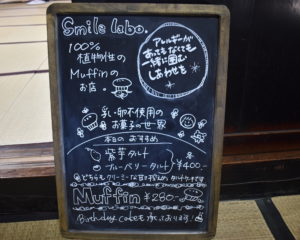 Smile labo.
100%
植物性の
Muffinの
お店。
アレルギーが
あってもなくても
一緒に囲む
しあわせを
乳・卵不使用の
お菓子の世界
本日のおすすめ
紫芋タルト
ブルーベリータルト
各
¥400-
どちらもクリーミーな豆腐
タルトです
Muffin ¥280-
Birthday cakeも承っております!